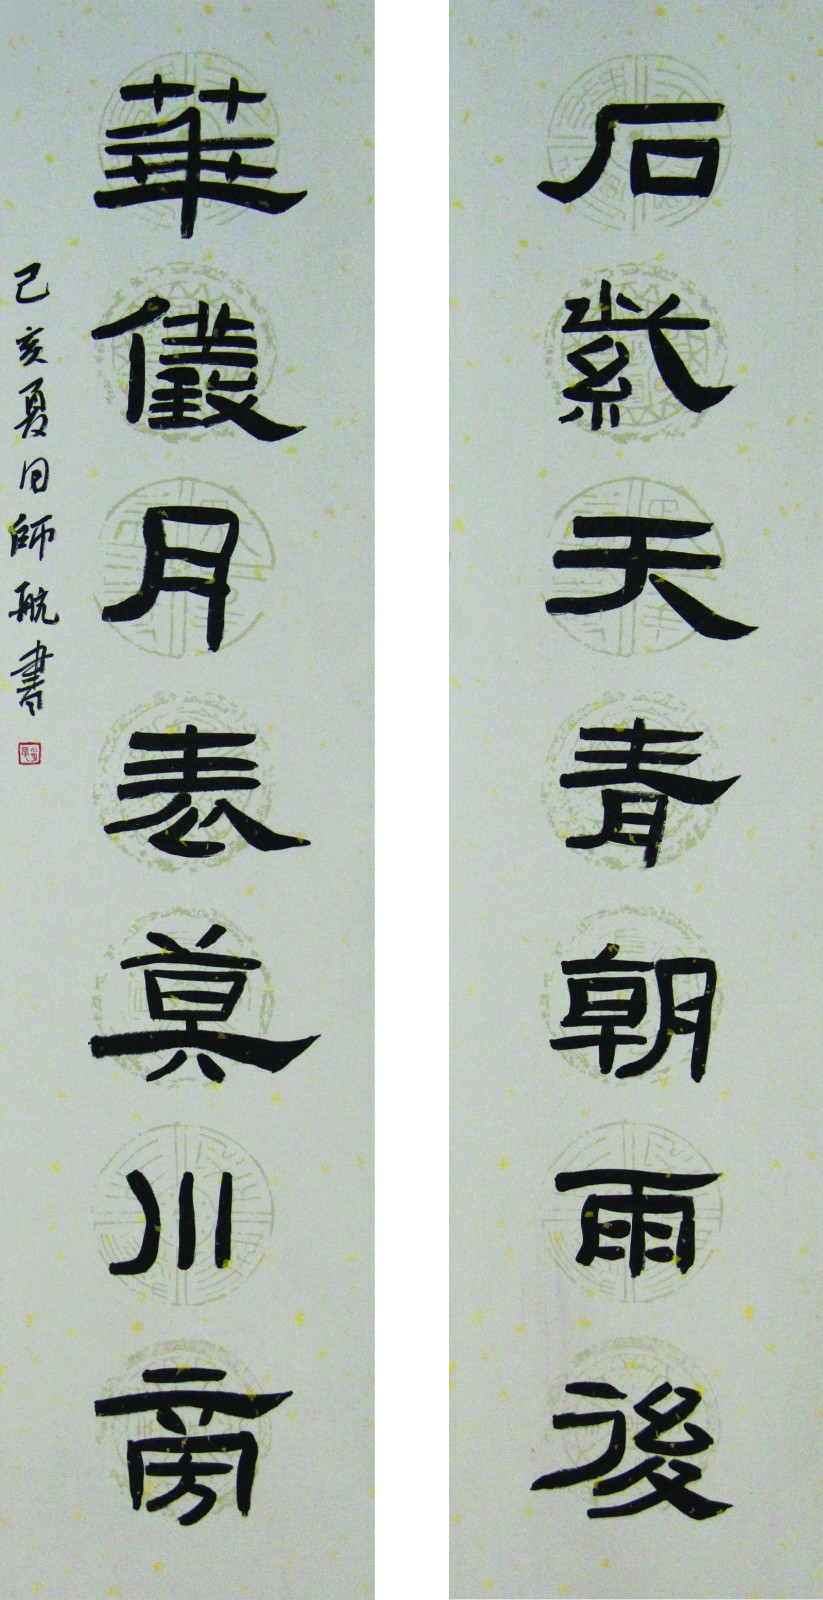 石紫天青朝雨後
華儼月表奠川旁
己亥夏日師航書